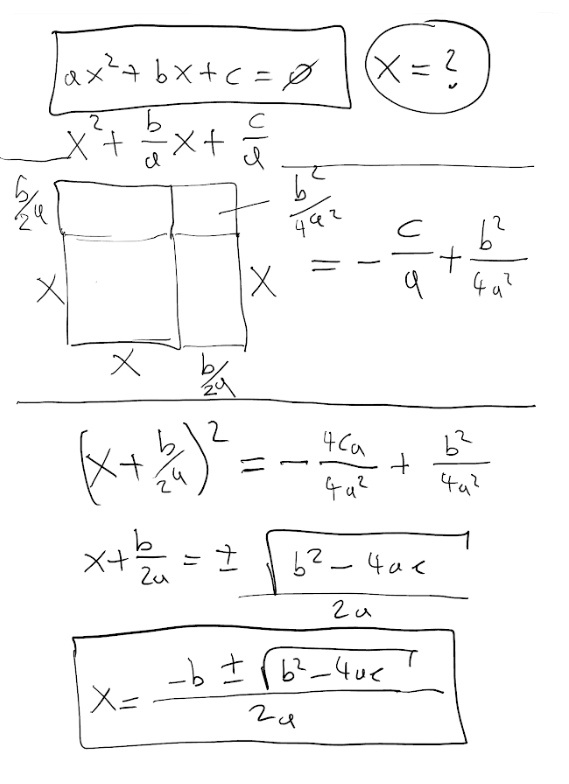 ax² + bx + c = ∅
x = ?
x² + b/a x + c/a
b/2a
b²/4a²
x
x
= - c/a + b²/4a²
x
b/2a
(x + b/2a)² = - 4ca/4a² + b²/4a²
x + b/2a = ± √(b² - 4ac)/2a
x = -b ± √(b² - 4ac)/2a